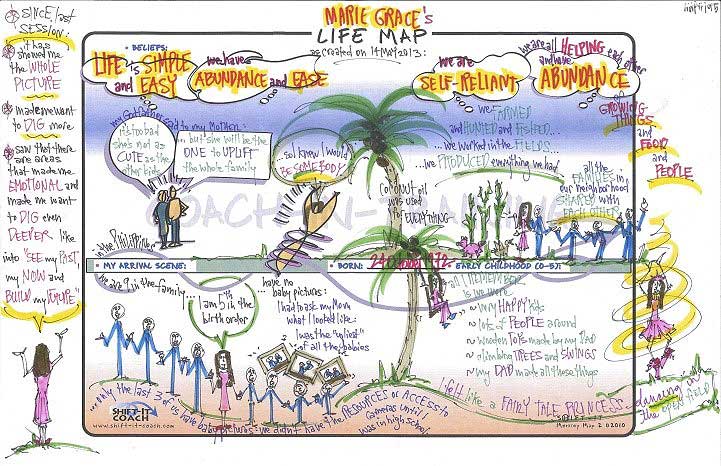 MARIE GRACE's
LIFE MAP
as created on 14 MAY 2013:
SINCE last
SESSION:
it has
showed me
the WHOLE
PICTURE
made me want
to DIG more
saw that there
are areas
that made me
EMOTIONAL and
made me want
to DIG even
DEEPER like
into "SEE my PAST,
my NOW and
BUILD my FUTURE"
• BELIEFS:
LIFE is SIMPLE
and EASY
we have
ABUNDANCE and EASE
we are
SELF-RELIANT
we are all HELPING each other
and have
ABUNDANCE
my Godfather said to my MOTHER:
it's too bad
she's not as
CUTE as the
other kids
...but she will be the
ONE to UPLIFT
the whole family
...so I knew I would
BE SOMEBODY
we FARMED
and HUNTED and FISHED...
...we worked in the FIELDS...
...we PRODUCED everything we had
coconut oil
was used
for EVERYTHING
...all the
FAMILIES in
our neighborhood
SHARED with
EACH OTHER
GROWING
THINGS
and
FOOD
and
PEOPLE
COACH-IN-TRAINING
in the PHILIPPINES
• MY ARRIVAL SCENE:
• BORN:
1972
EARLY CHILDHOOD (0-5):
we are 9 in the family...
I am 5th in the
birth order
...have no
baby pictures:
I had to ask my Mom
what I looked like:
I was the "ugliest"
of all the babies
all I REMEMBER
is we were
~ very HAPPY kids
~ lots of PEOPLE around
~ wooden TOYS made by my DAD
~ climbing TREES and SWINGS
~ my DAD made all these things
I felt like a FAIRY TALE PRINCESS...dancing in
the OPEN FIELD
...only the last 3 of us have baby pictures: we didn't have the RESOURCES or ACCESS to
cameras until I
was in high school
SHIFT-IT
COACH
www.shift-it-coach.com
SHIFT-IT
Memory Map ©2010